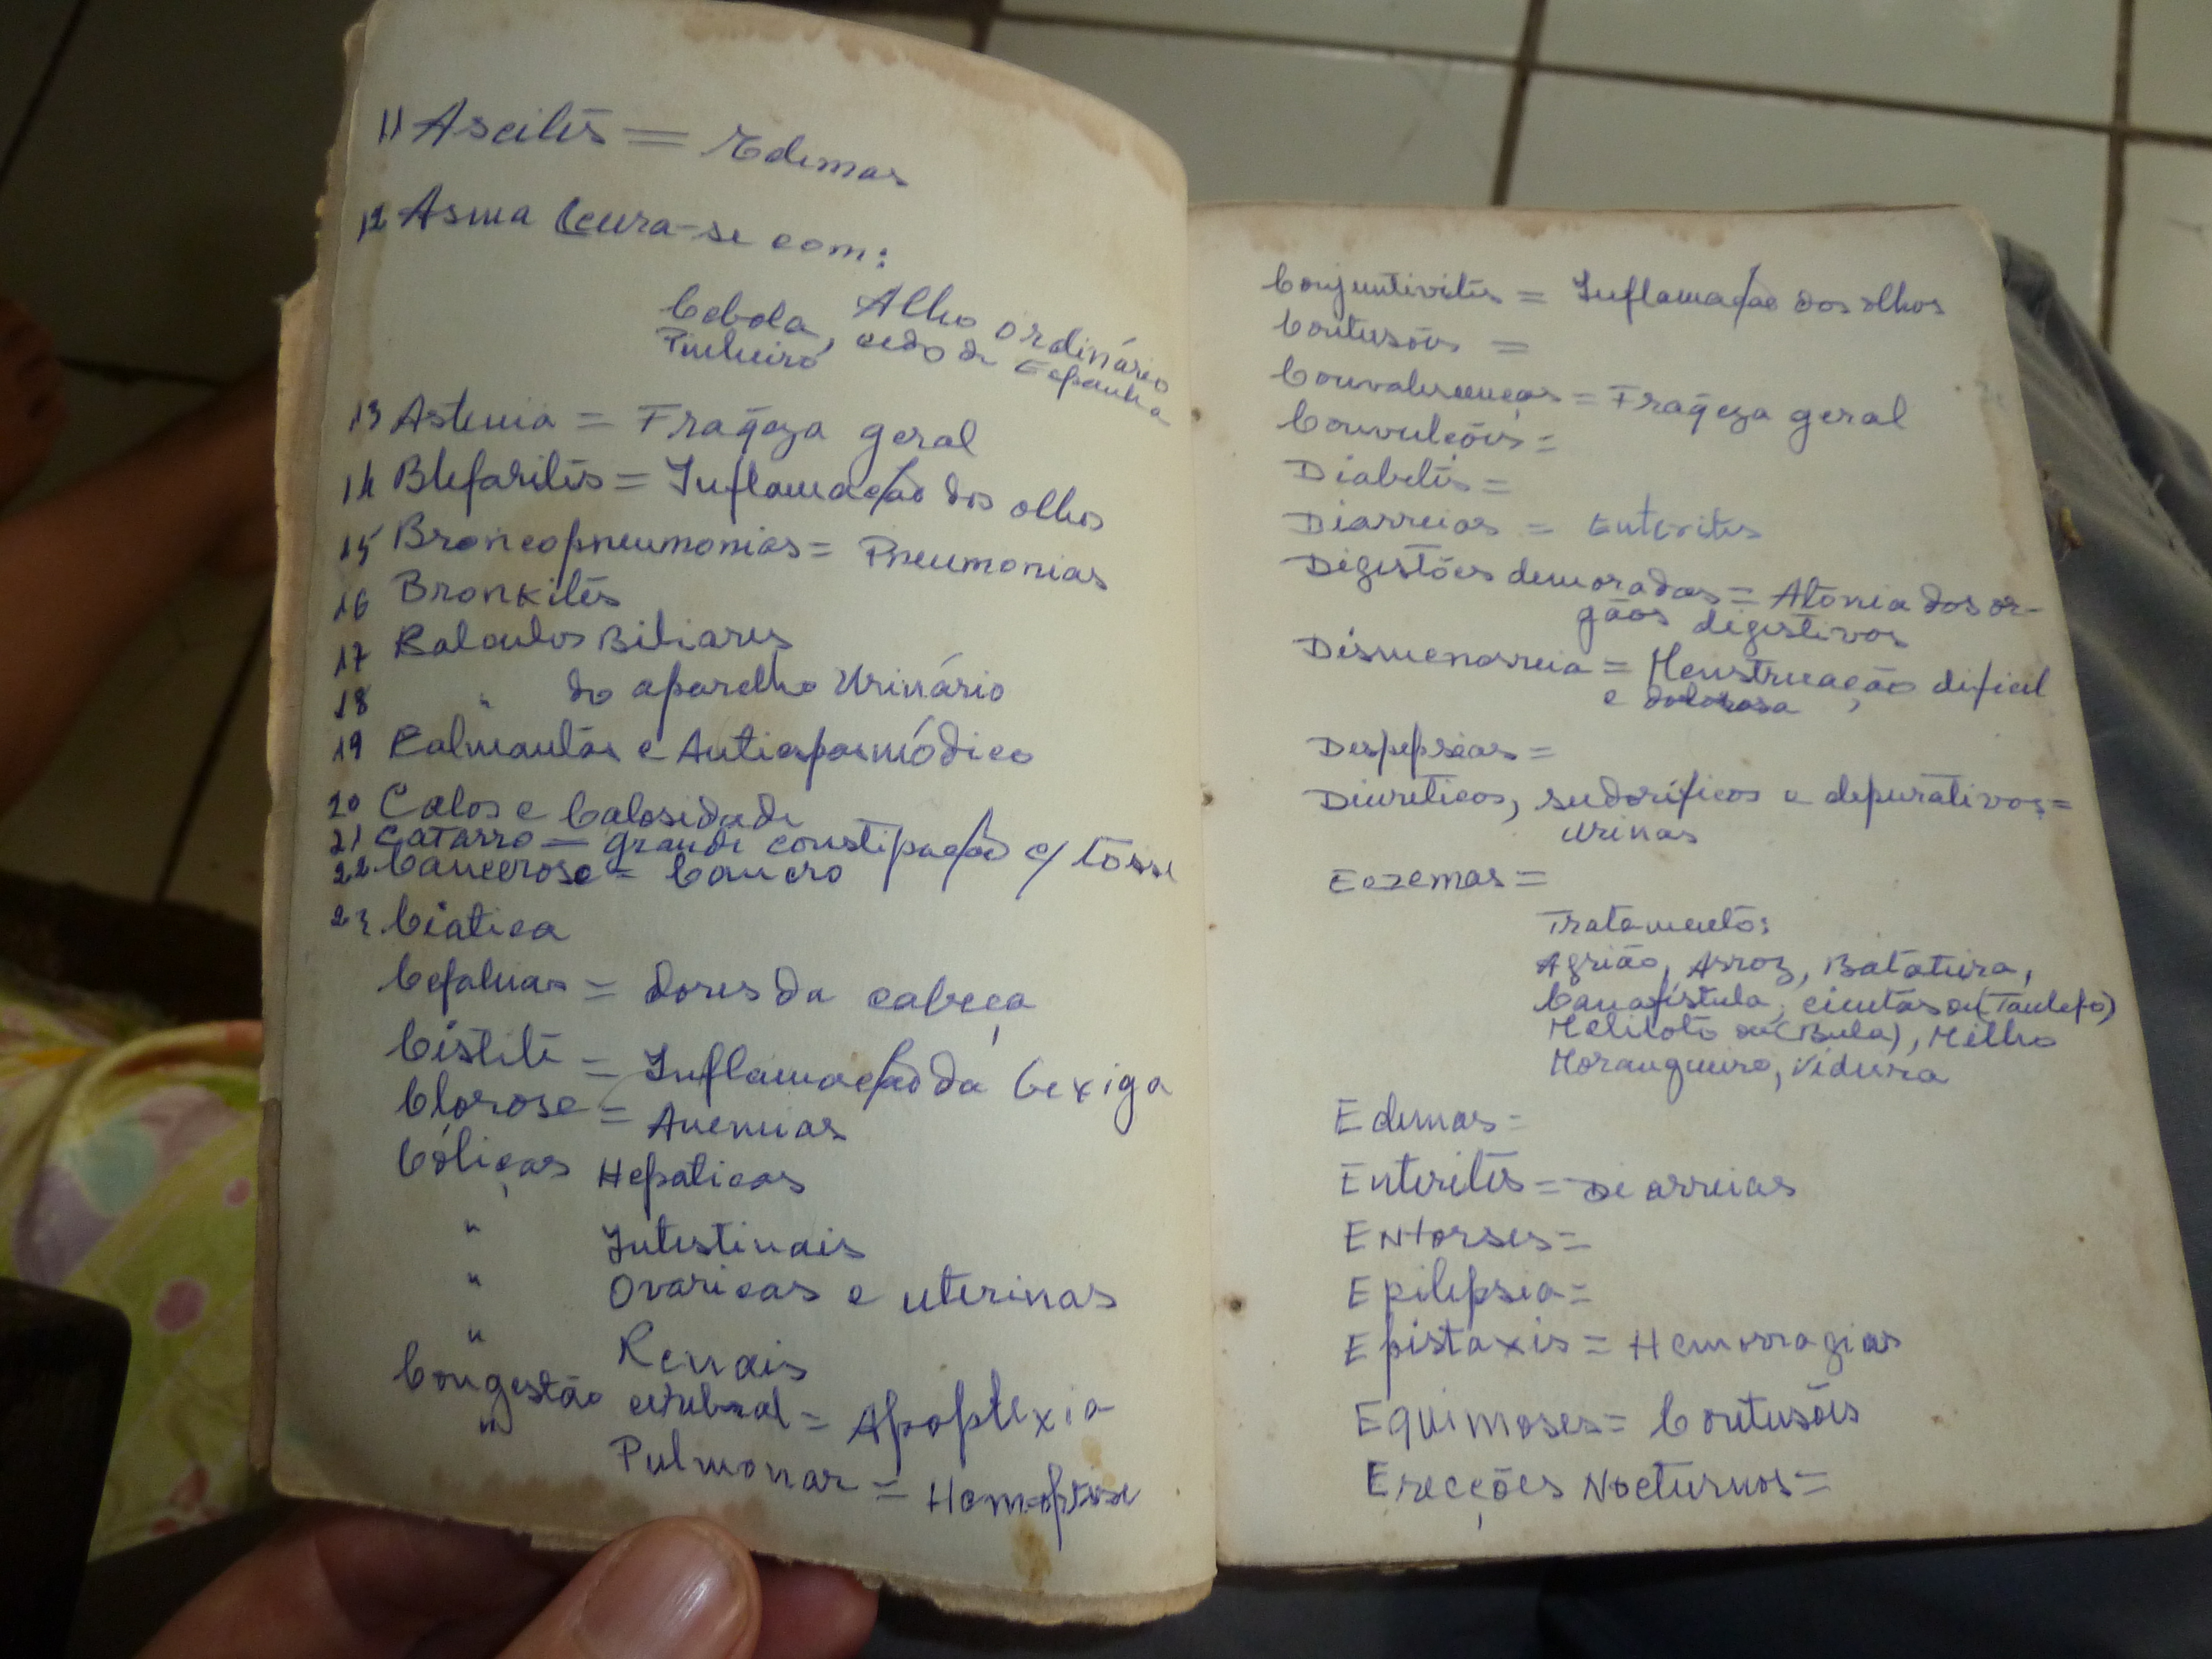 11 Ascitēs = Edemas
12 Asma (cura-se com:
Cebola, Alho ordinário
Pinheiro, cedo de Espanha
13 Astenia = Fraqeza geral
14 Blefaritēs = Inflamação dos olhos
15 Broncopneumonias = Pneumonias
16 Bronkitēs
17 Calculos Biliares
18 " do aparelho Urinário
19 Calmantēs e Antiespasmódico
20 Calos e Calosidade
21 Catarro = grande constipação c/ tosse
22 Cancerose = Cancro
23 Ciatica
Cefaleias = dores da cabeça
Cistite = Inflamação da bexiga
Clorose = Anemias
Cóliças Hepaticas
" Intestinais
" Ovaricas e uterinas
" Renais
Congestão cerebral = Apoplexia
" Pulmonar = Hemoptise
Conjuntivitēs = Inflamação dos olhos
Contusōis =
Convalescenças = Fraqeza geral
Convulçōis =
Diabetēs =
Diarreias = Enteritēs
Digestões demoradas = Atonia dos or-
gãos digestivos
Dismenorreia = Menstruação dificil
e dolorosa
Despepsias =
Diureticos, sudorificos e depurativos =
urinas
Eczemas =
Tratamento:
Agrião, Arroz, Batateira,
Canafistula, (Tanlefo)
Meliloto ou (Bula), Milho
Morangueiro, Videira
Edemas =
Enteritēs = Diarreias
Entorses =
Epilepsia =
Epistaxis = Hemorragias
Equimoses = Contusōis
Ereções Nocturnos =